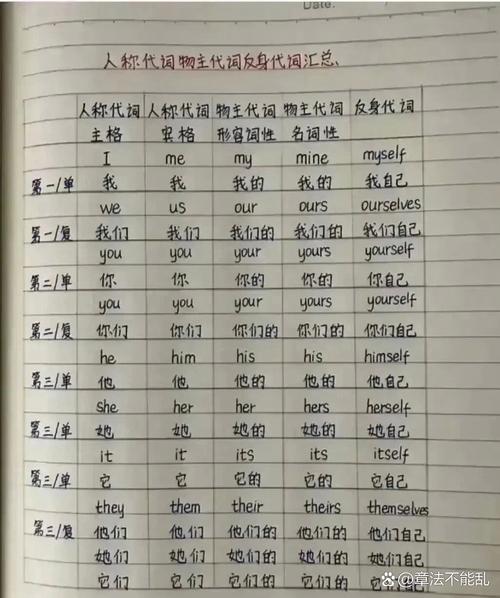 Date.
人称代词物主代词反身代词汇总、
人称代词 人称代词 物主代词 物主代词 反身代词
主格 宾格 形容词性 名词性
I me my mine myself
第一/单 我 我 我的 我的 我自己
we us our ours ourselves
第一/复 我们 我们 我们的 我们的 我们自己
you you your yours yourself
第二/单 你 你 你的 你的 你自己
you you your yours yourself
第二/复 你们 你们 你们的 你们的 你们自己
he him his his himself
第三/单 他 他 他的 他的 他自己
she her her hers herself
第三/单 她 她 她的 她的 她自己
it it its its itself
第三/单 它 它 它的 它的 它自己
they them their theirs themselves
第三/复 他们 他们 他们的 他们的 他们自己
她们 她们 她们的 她们的 她们自己
它们 它们 它们的 它们的 它们自己
章法不能乱